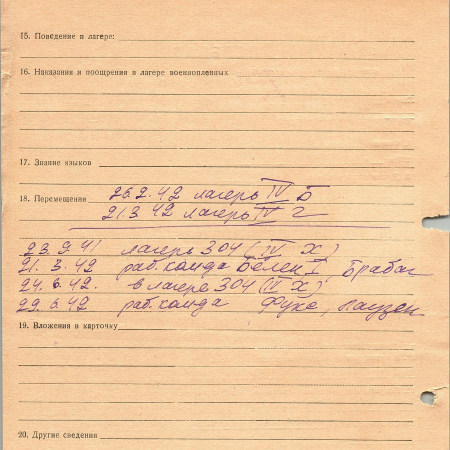 15. Поведение в лагере:
16. Наказания и поощрения в лагере военнопленных
17. Знание языков
18. Перемещения 26.2.42 лагерь IV Б
21.3 42 лагерь IV Г
23.9.41 лагерь 304 (IV Х)
21.3.42 раб.команда Белен I, Брабаг
24.6.42. в лагере 304 (IV Х)
29.6.42 раб.команда Фукс, Лаузен
19. Вложения в карточку
20. Другие сведения